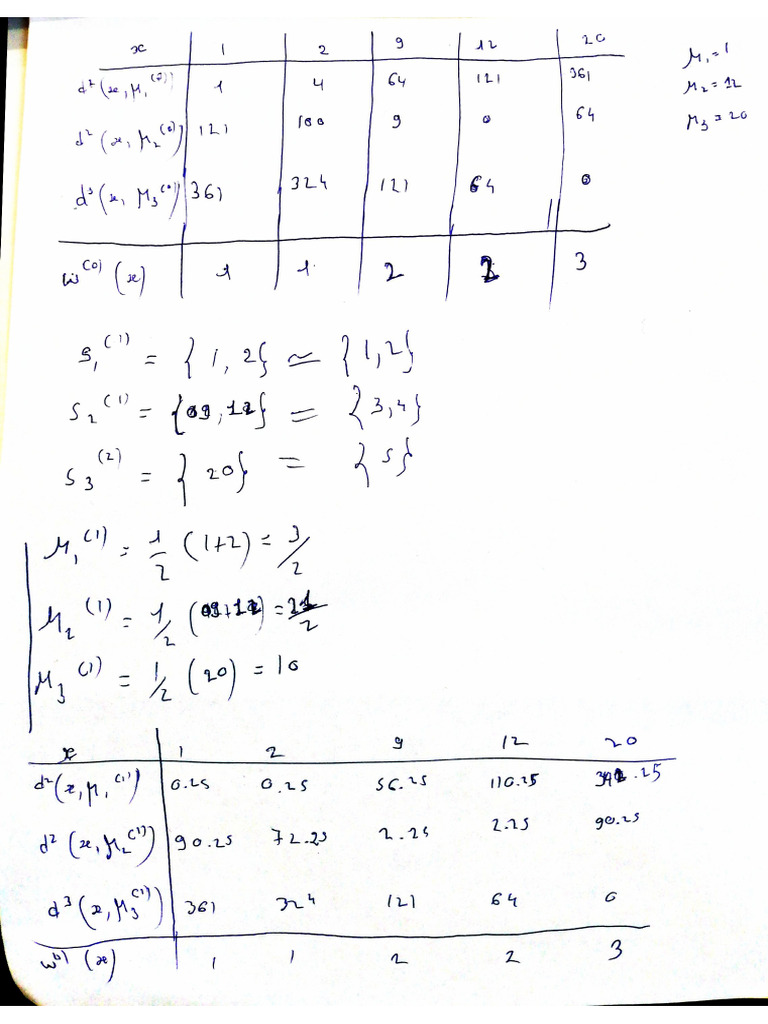 x 1 2 9 12 20
μ₁=1
d²(x, μ₁⁽⁰⁾) 1 4 64 121 361
μ₂=12
d²(x, μ₂⁽⁰⁾) 121 100 9 0 64
μ₃=20
d³(x, μ₃⁽⁰⁾) 361 324 121 64 0
w⁽⁰⁾(x) 1 1 2 2 3
S₁⁽¹⁾ = {1, 2} ≃ {1,2}
S₂⁽¹⁾ = {09, 12} = {3,4}
S₃⁽²⁾ = {20} = {5}
μ₁⁽¹⁾ = 1/2 (1+2) = 3/2
μ₂⁽¹⁾ = 1/2 (09+12) = 21/2
μ₃⁽¹⁾ = 1/2 (20) = 10
x 1 2 9 12 20
d²(x, μ₁⁽¹⁾) 0.25 0.25 56.25 110.25
d²(x, μ₂⁽¹⁾) 90.25 72.25 2.25 2.25 90.25
d³(x, μ₃⁽¹⁾) 361 324 121 64 0
(x) 1 1 2 2 3